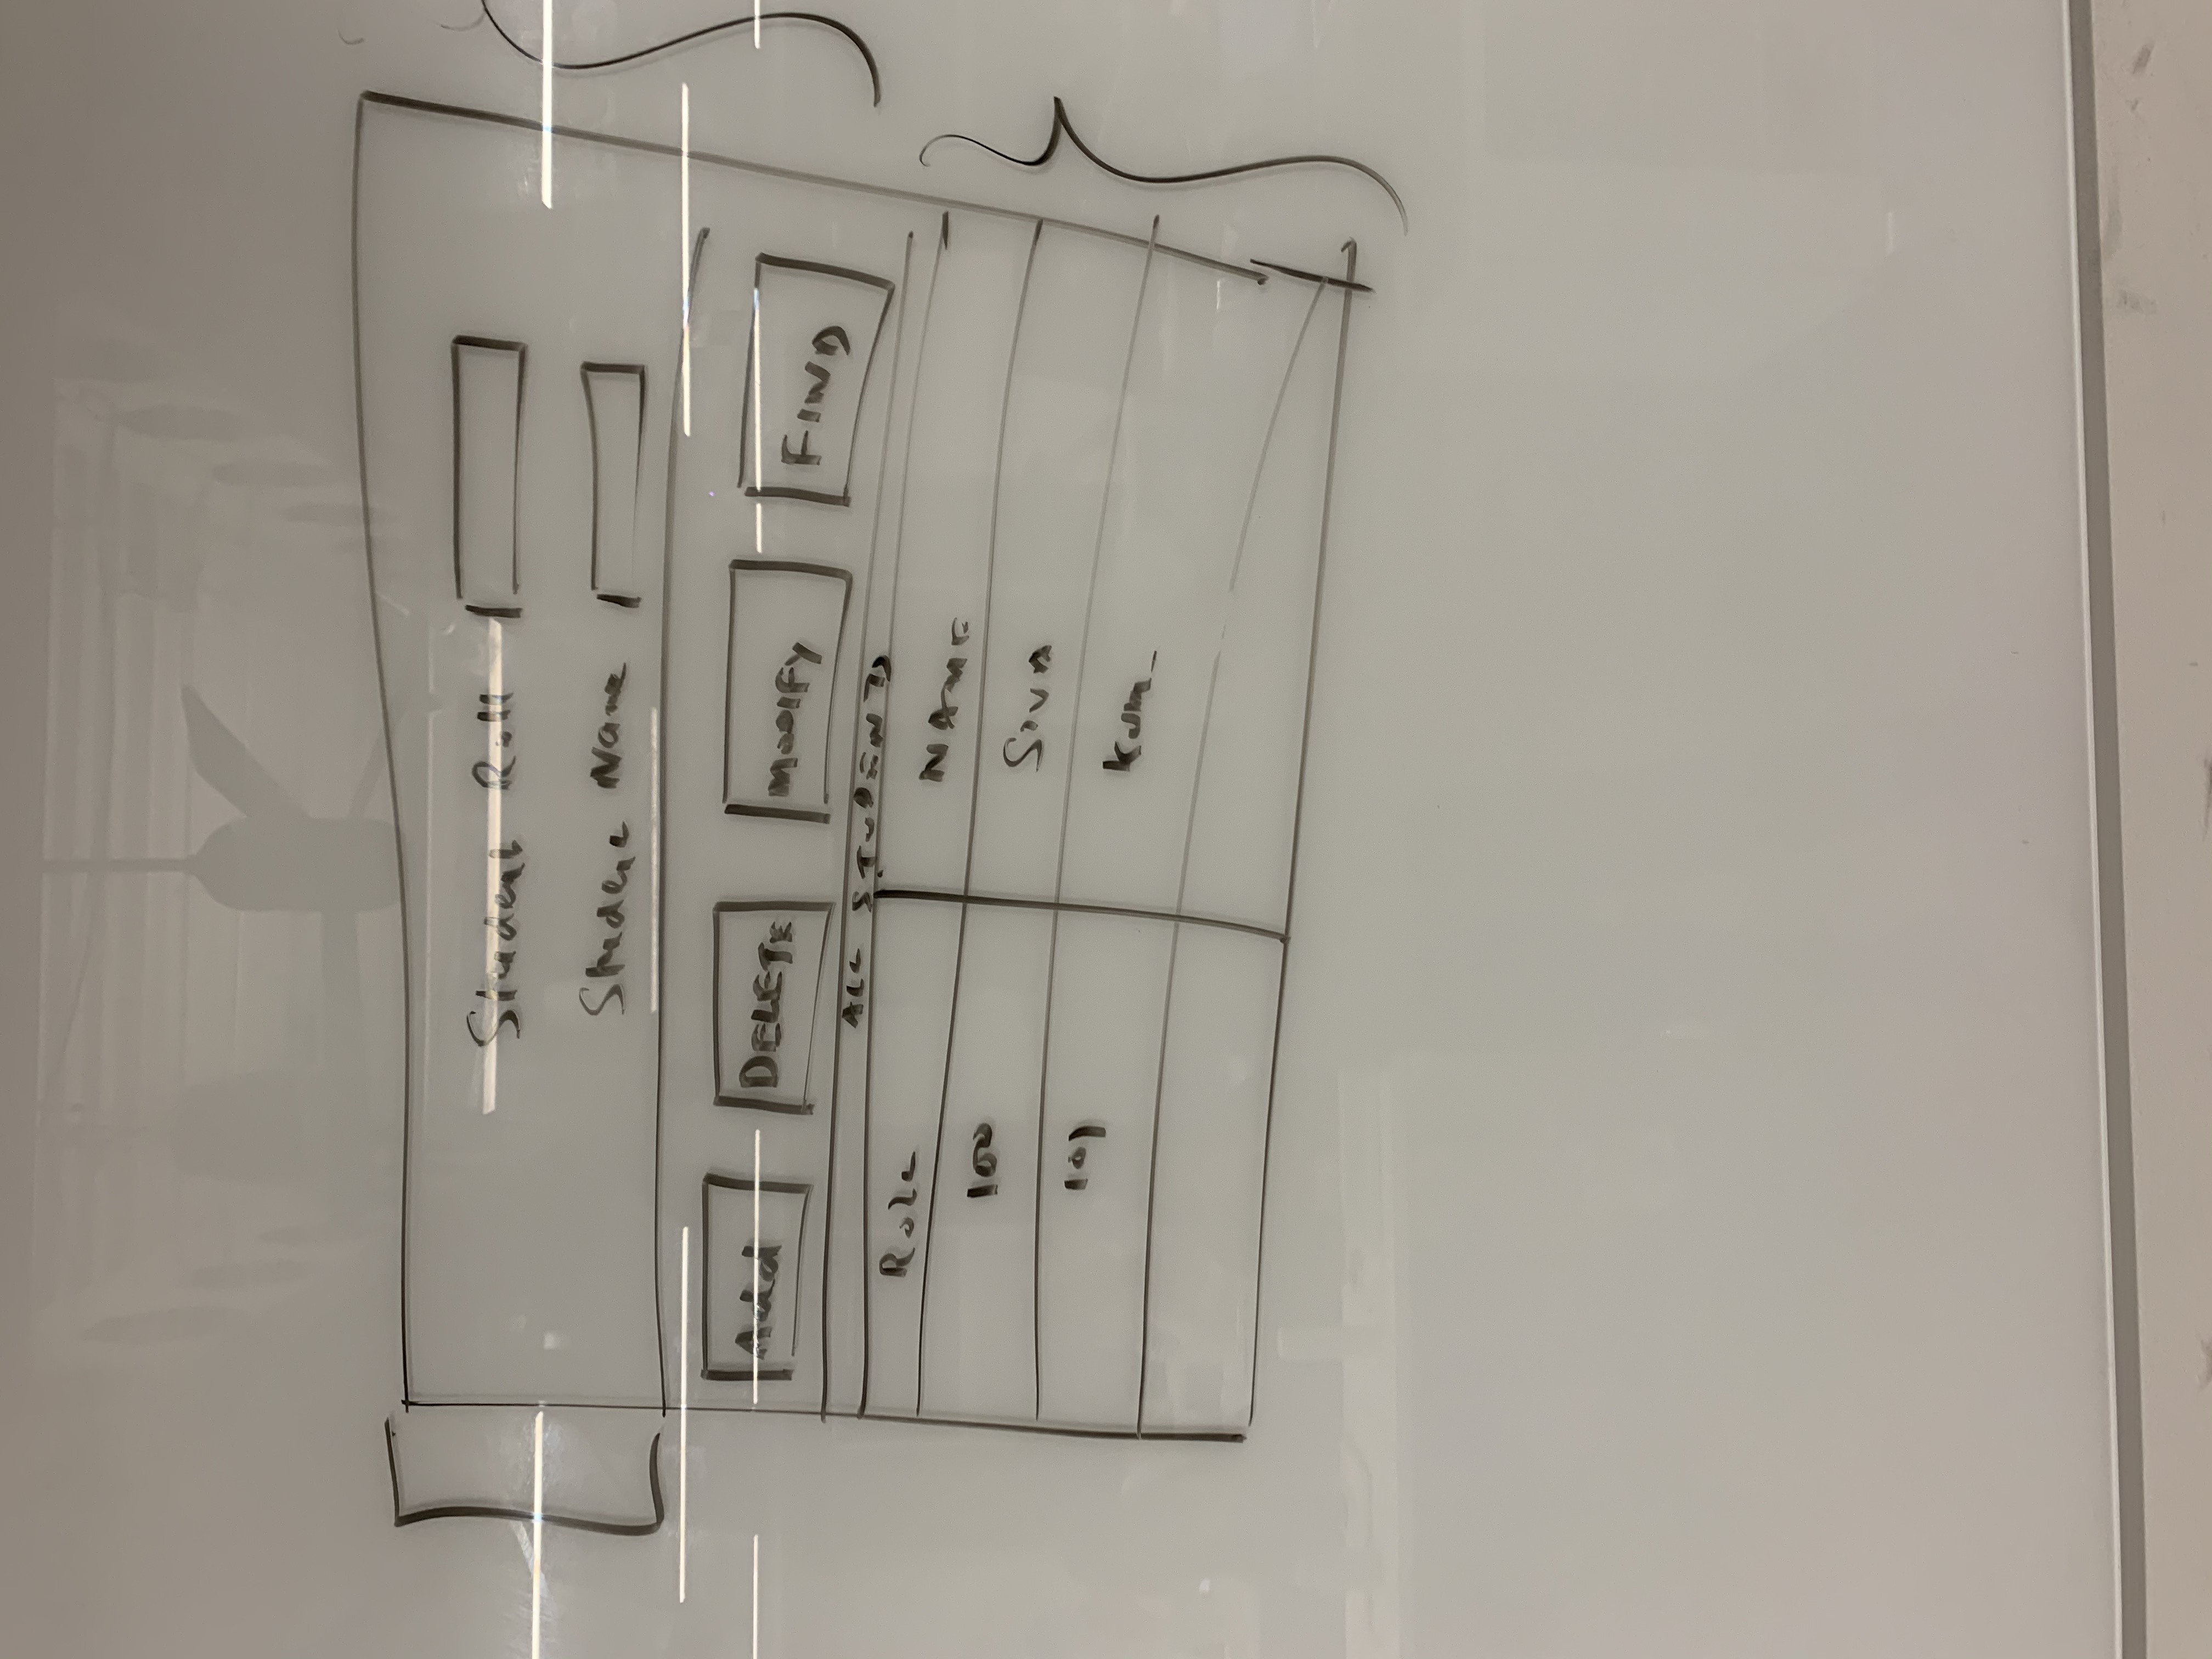 Student Roll
Student Name
Add DELETE MODIFY FIND
ALL STUDENTS
Roll NAME
100 Siva
101 Kum_